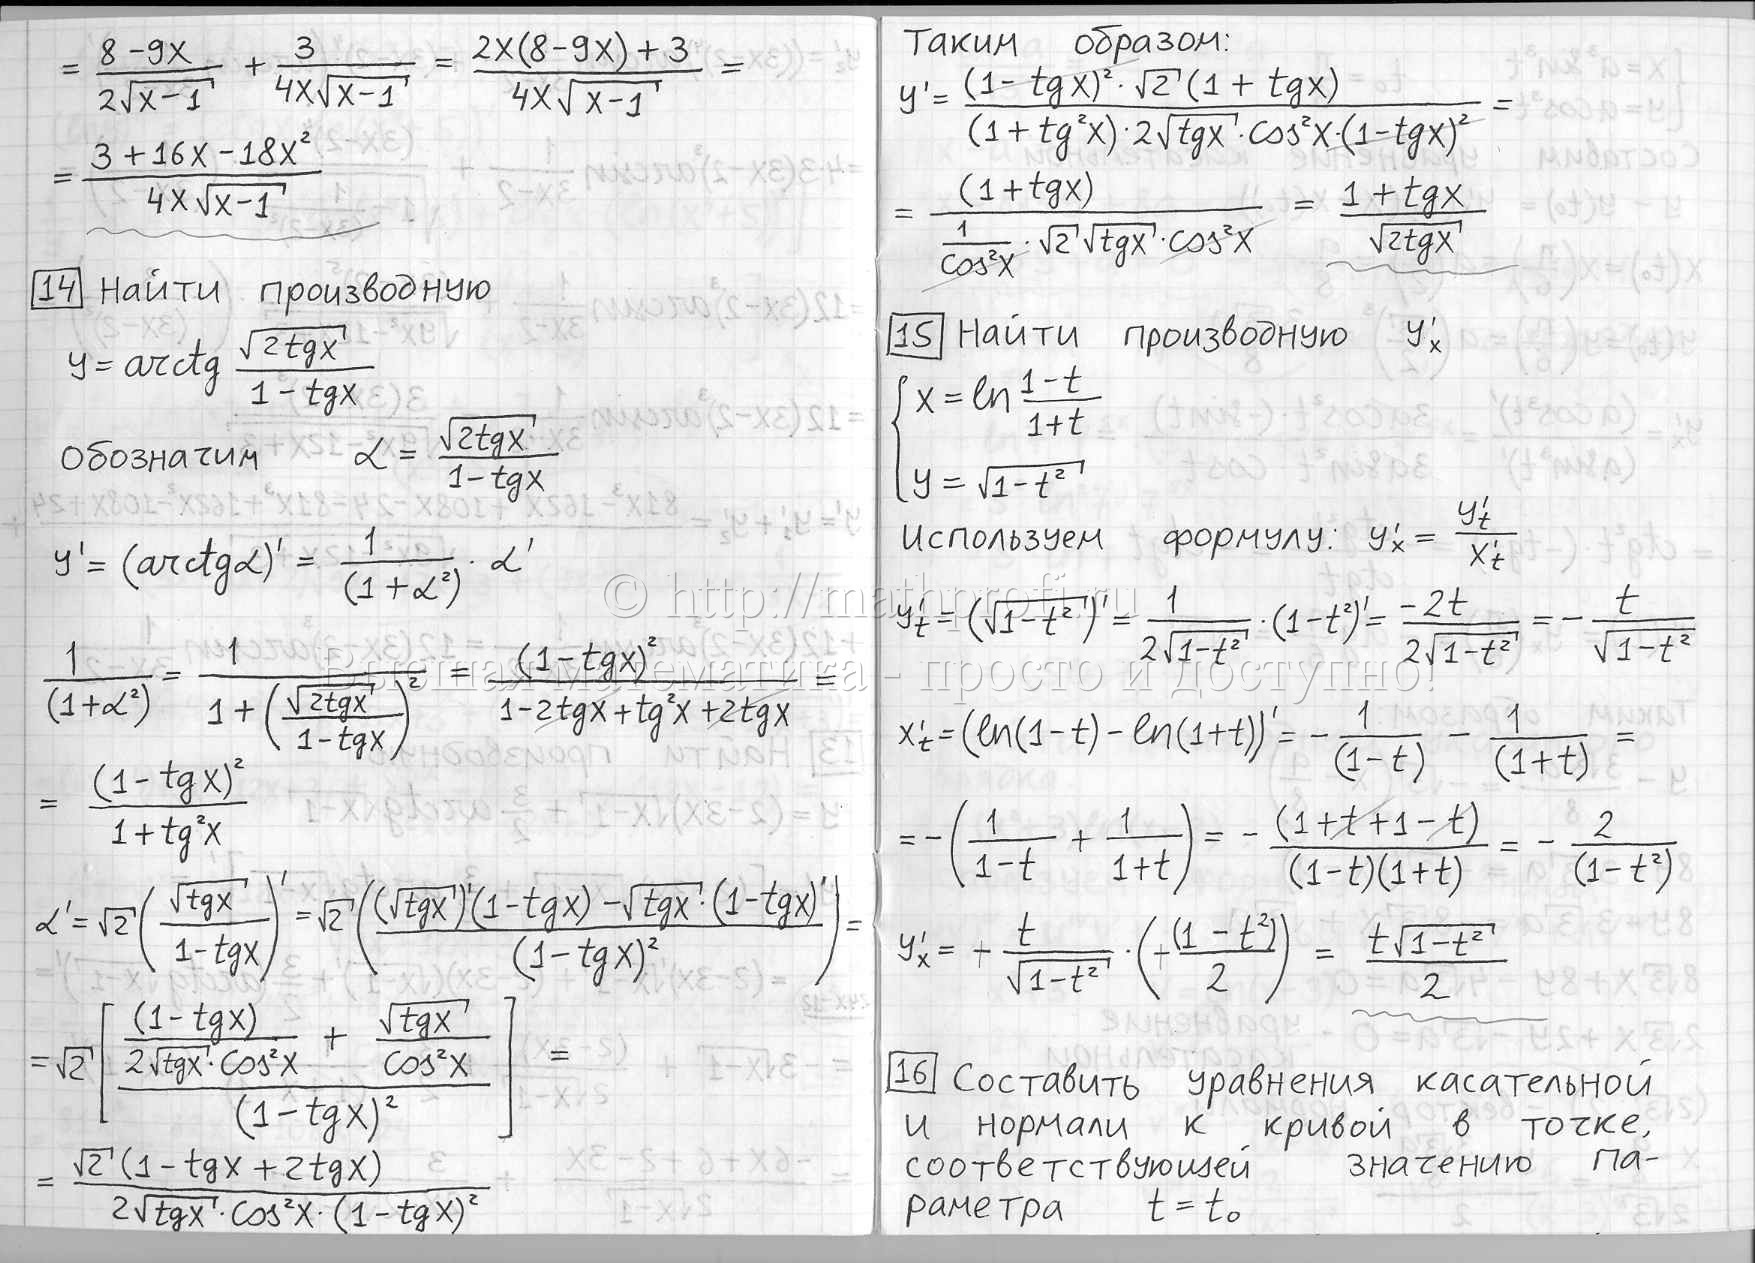 = (8-9x)/(2√(x-1)) + 3/(4x√(x-1)) = (2x(8-9x)+3)/(4x√(x-1)) =
= (3+16x-18x²)/(4x√(x-1))
14 Найти производную
y = arctg (√(2tgx))/(1-tgx)
Обозначим α = (√(2tgx))/(1-tgx)
y' = (arctgα)' = 1/(1+α²) · α'
1/(1+α²) = 1/(1+(√(2tgx)/(1-tgx))²) = (1-tgx)²/(1-2tgx+tg²x+2tgx) =
= (1-tgx)²/(1+tg²x)
α' = √2 (√(tgx)/(1-tgx))' = √2 (((√(tgx))'(1-tgx) - √(tgx)·(1-tgx)')/(1-tgx)²) =
= √2 [((1-tgx)/(2√(tgx)·cos²x) + √(tgx)/cos²x)/(1-tgx)²] =
= (√2(1-tgx+2tgx))/(2√(tgx)·cos²x·(1-tgx)²)
Таким образом:
y' = ((1-tgx)²·√2(1+tgx))/((1+tg²x)·2√(tgx)·cos²x·(1-tgx)²) =
= (1+tgx)/(1/cos²x · √2√(tgx)·cos²x) = (1+tgx)/√(2tgx)
15 Найти производную y'ₓ
{ x = ln (1-t)/(1+t)
y = √(1-t²)
Используем формулу: y'ₓ = y'ₜ/x'ₜ
y'ₜ = (√(1-t²))' = 1/(2√(1-t²)) · (1-t²)' = -2t/(2√(1-t²)) = - t/√(1-t²)
x'ₜ = (ln(1-t) - ln(1+t))' = - 1/(1-t) - 1/(1+t) =
= -(1/(1-t) + 1/(1+t)) = - (1+t+1-t)/((1-t)(1+t)) = - 2/(1-t²)
y'ₓ = + t/√(1-t²) · (+(1-t²)/2) = t√(1-t²)/2
16 Составить уравнения касательной
и нормали к кривой в точке,
соответствующей значению па-
раметра t = t₀
© http://mathprofi.ru
Высшая математика - просто и доступно!